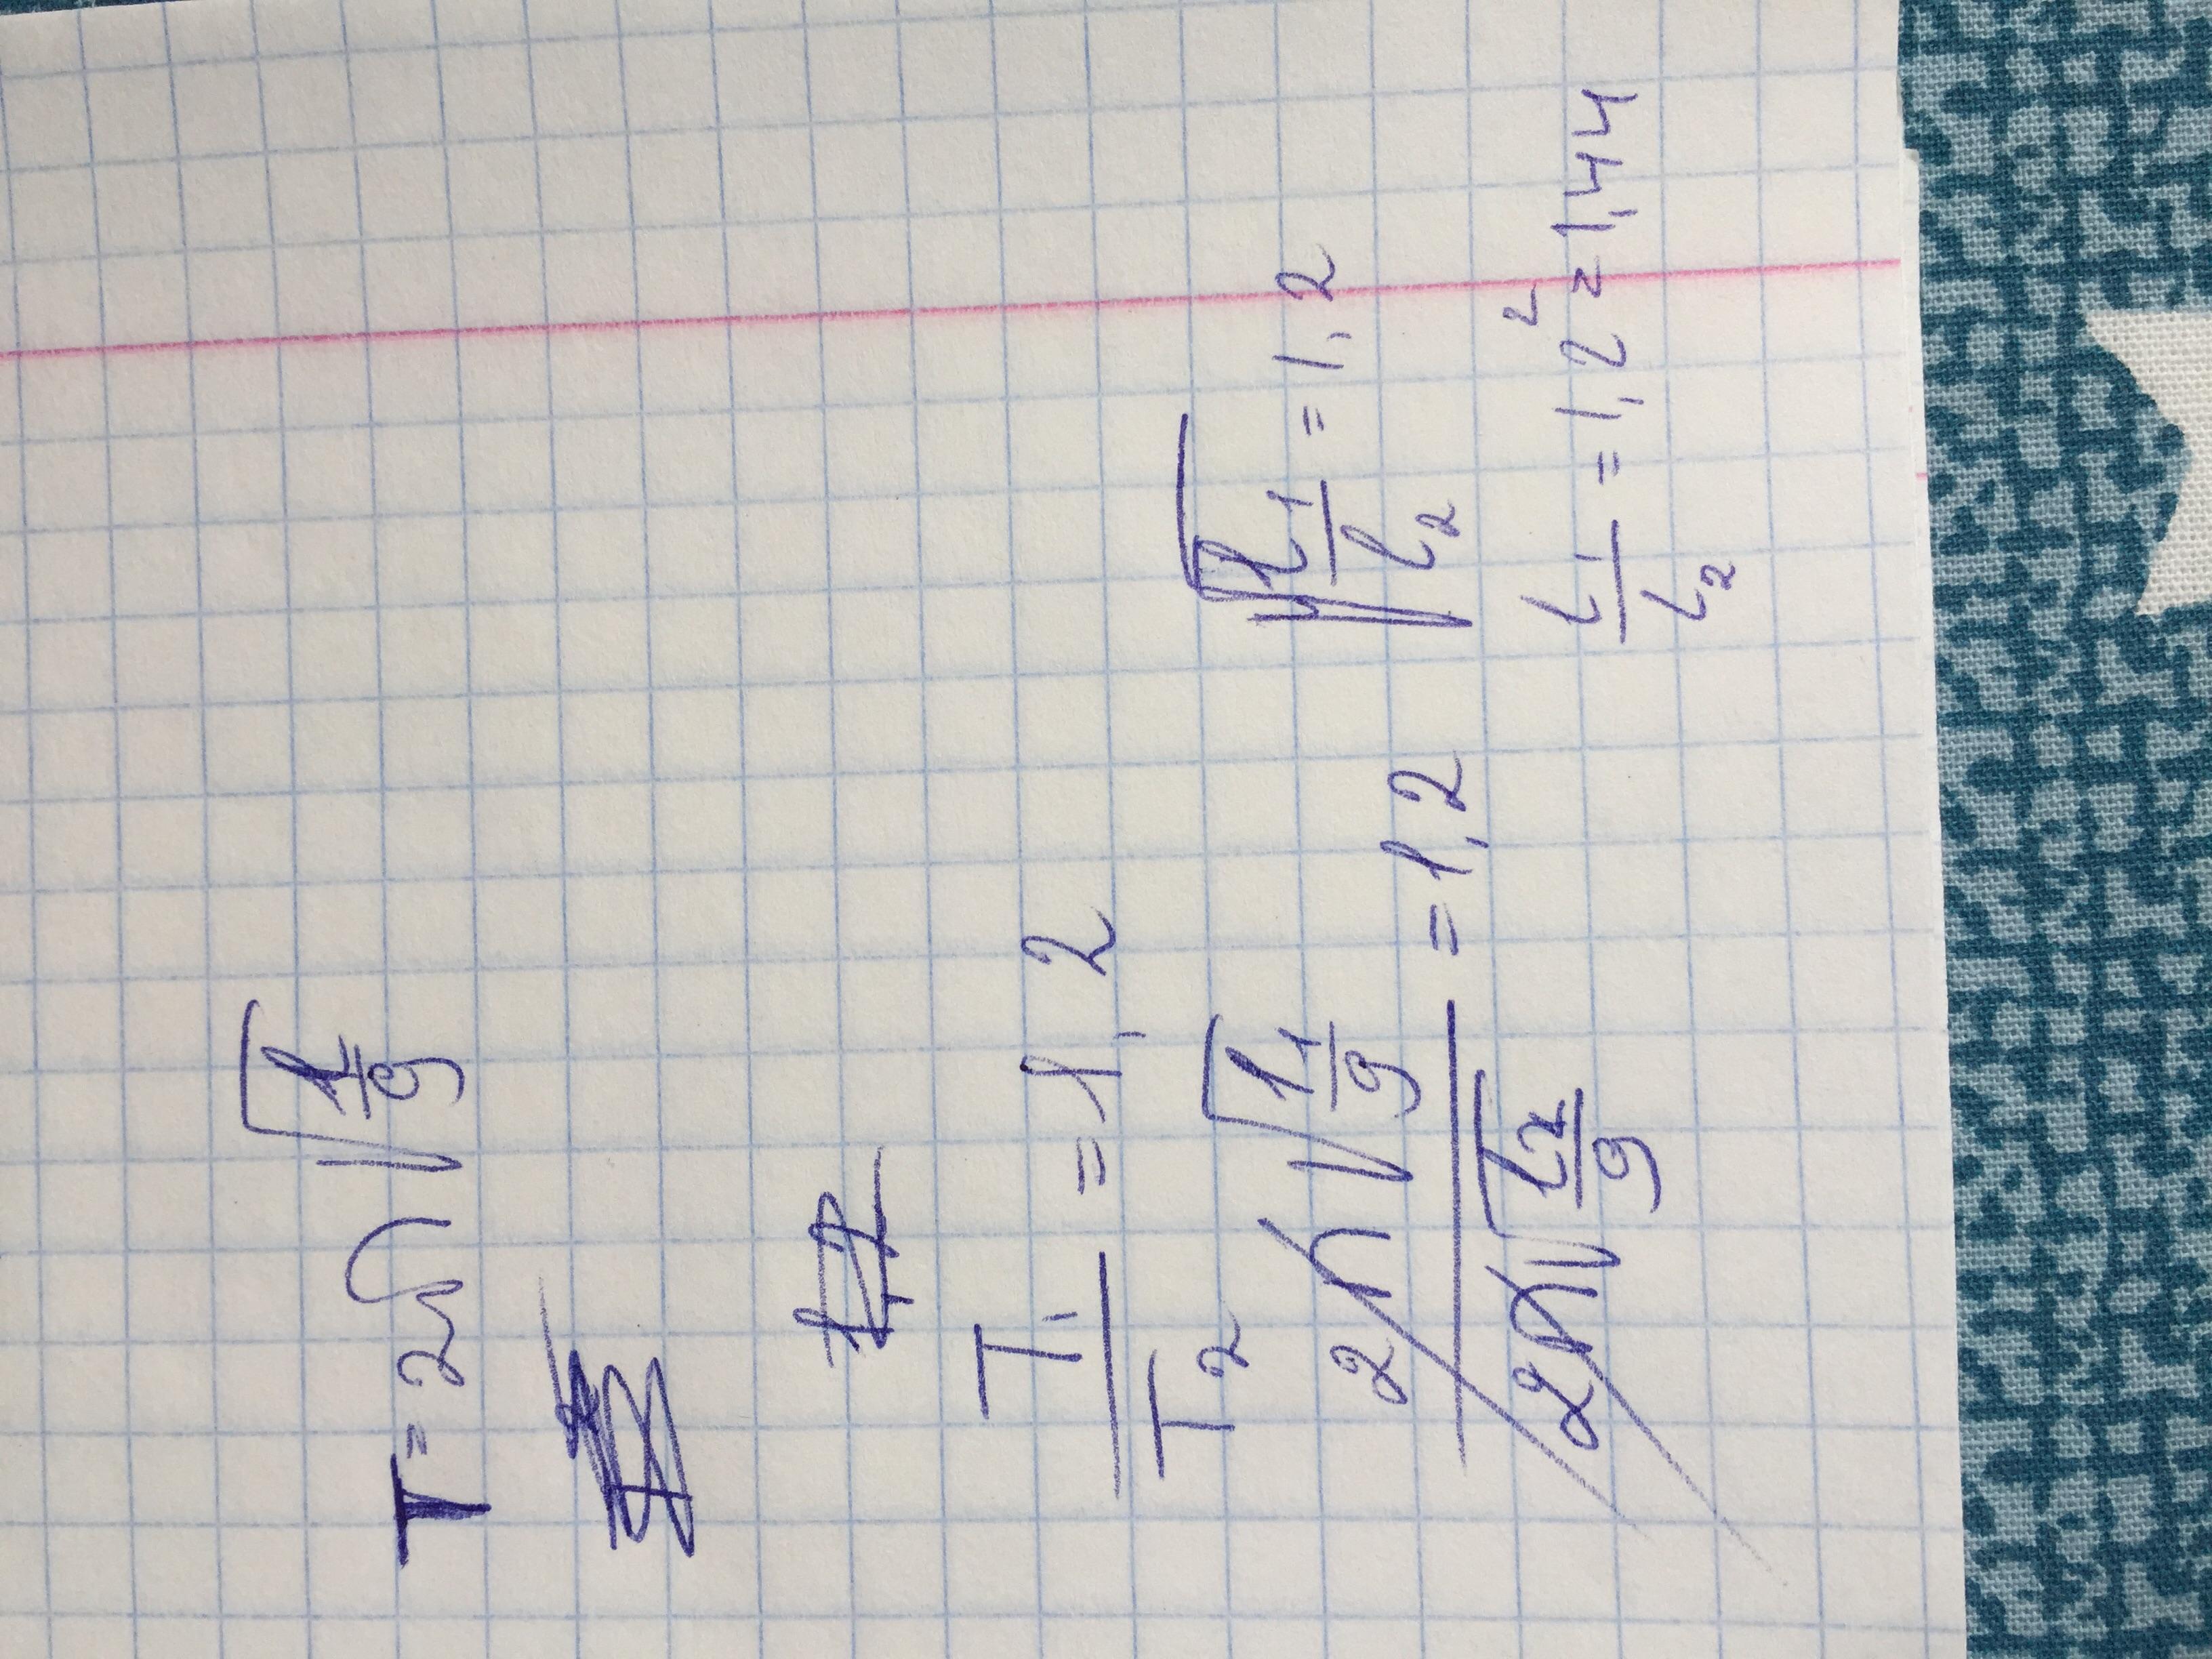 T = 2π √(l/g)
T₁/T₂ = 1,2
2π√(l₁/g) / 2π√(l₂/g) = 1,2
√(l₁/l₂) = 1,2
l₁/l₂ = 1,2² = 1,44